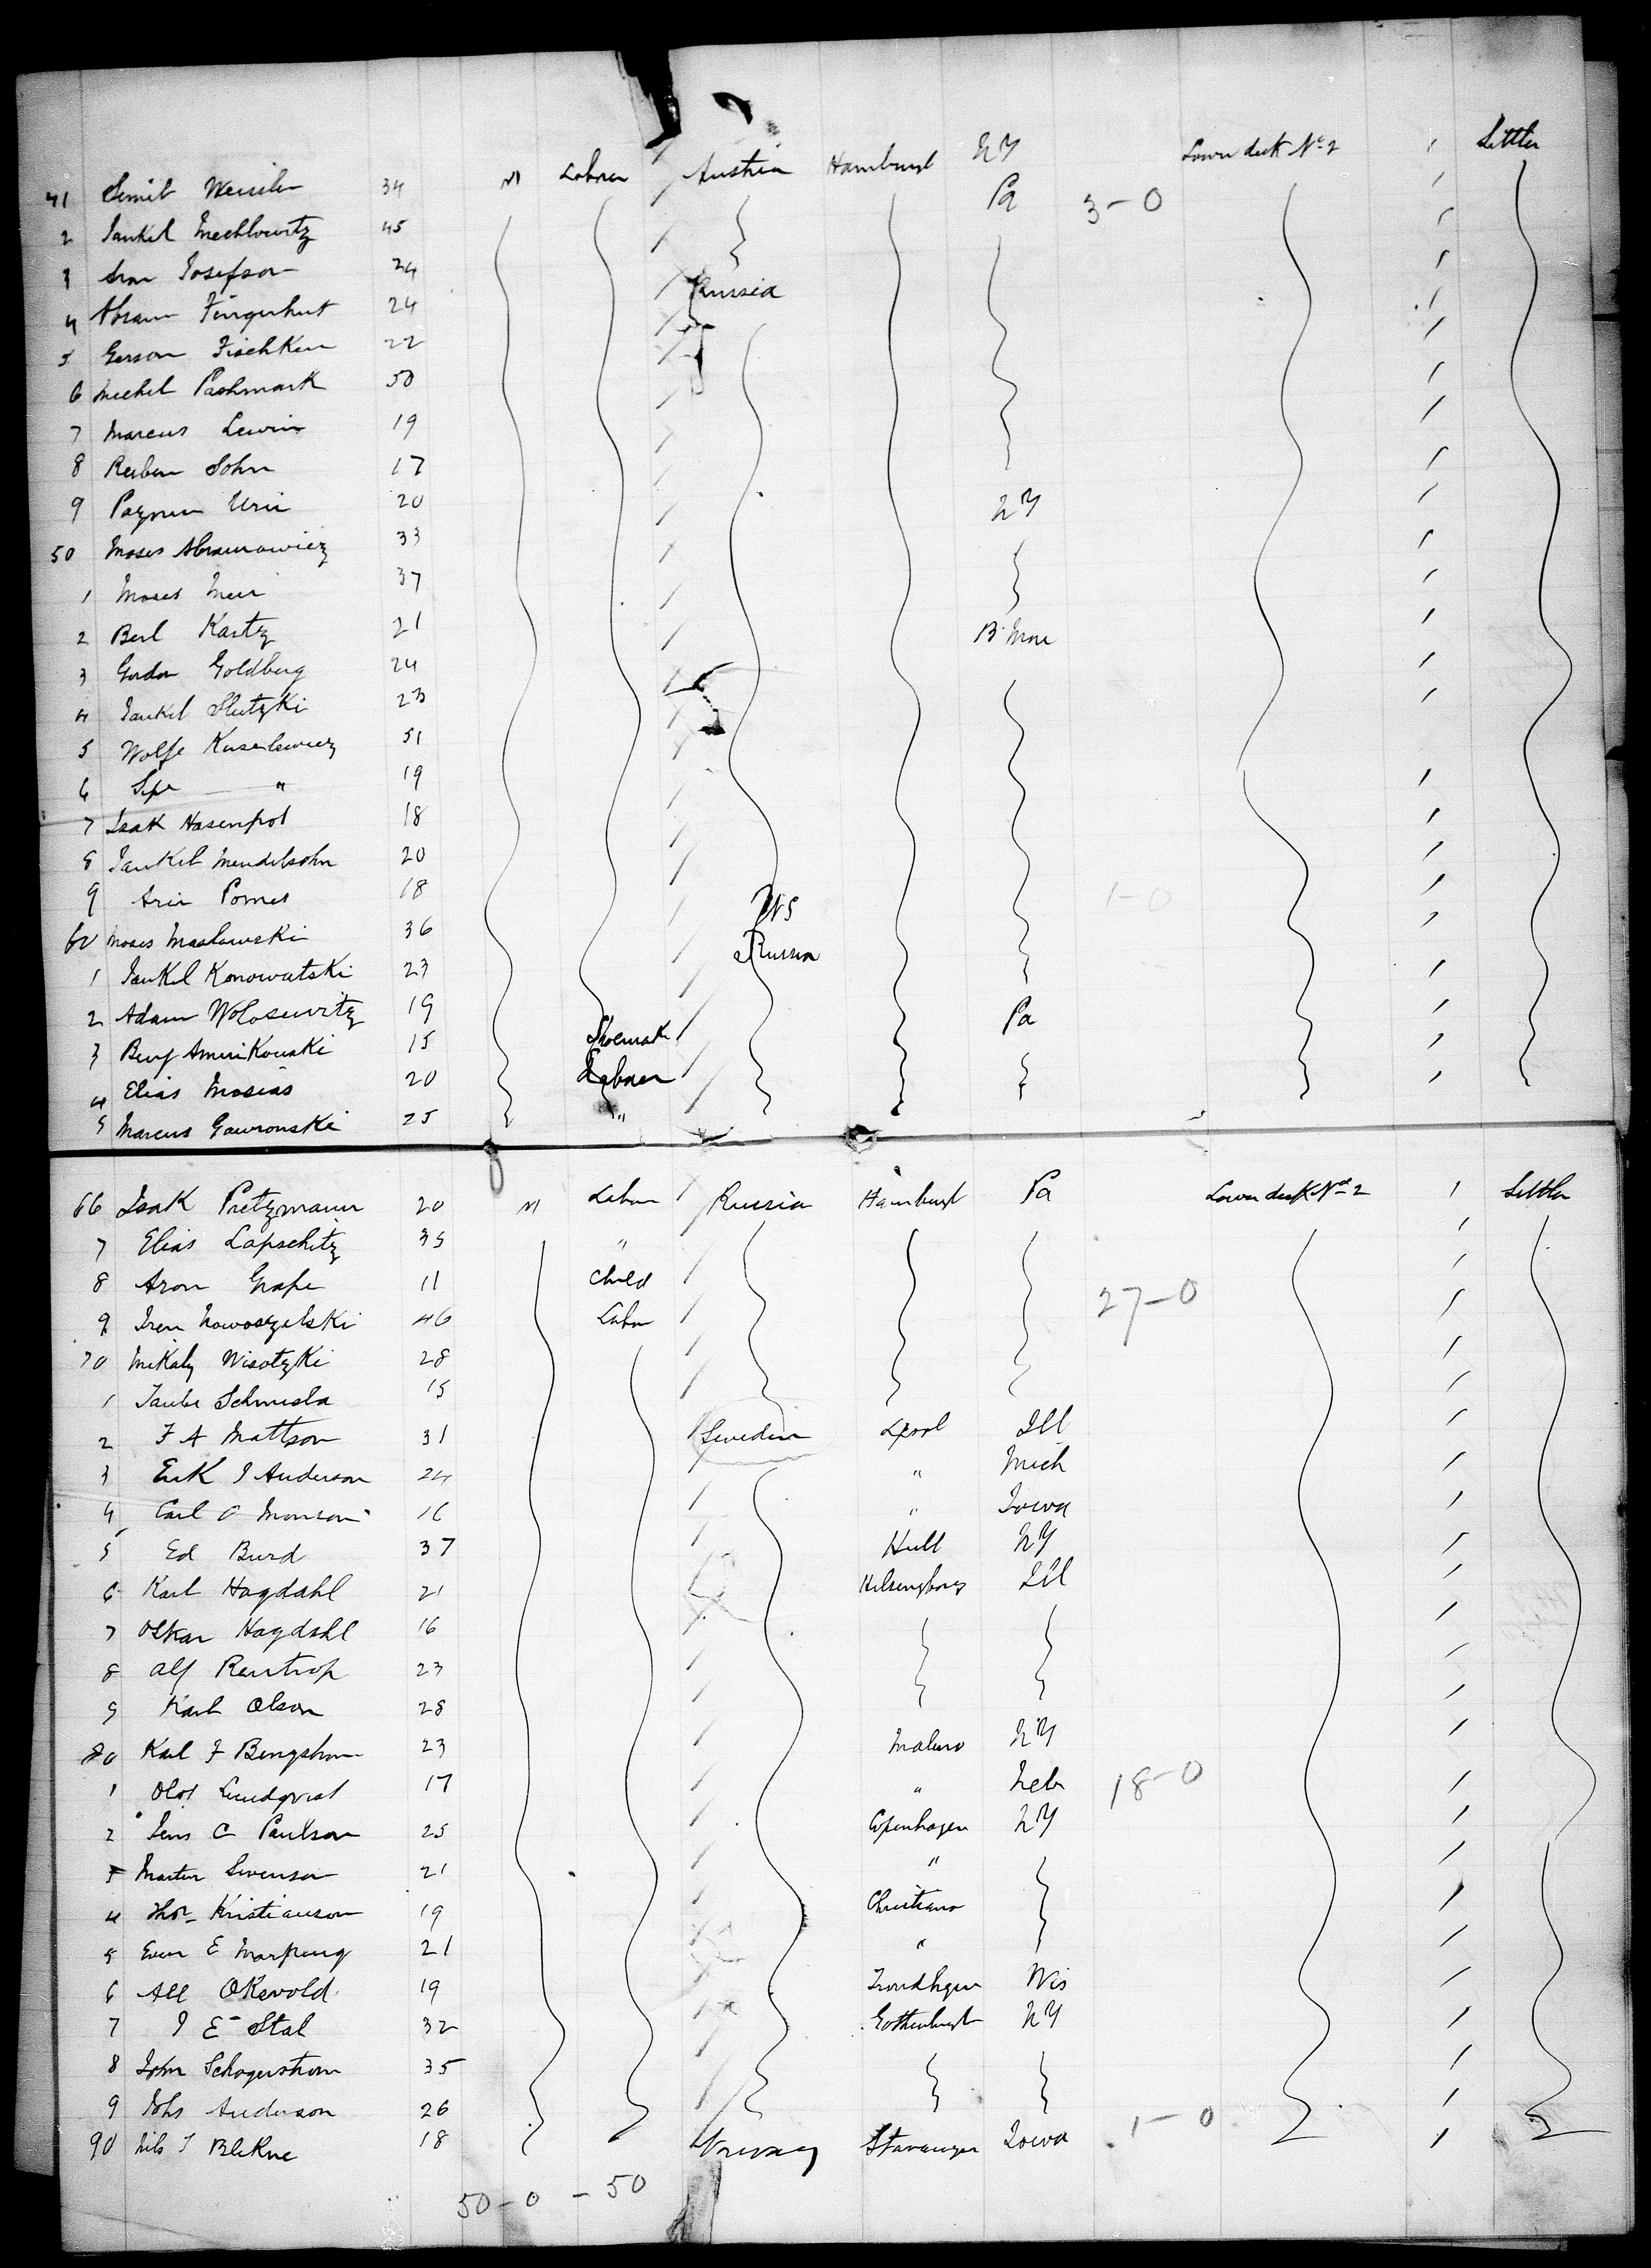 41 Weisler 34 M Laborer Austria Hamburg NY Lower deck No 2 1 Settler
2 Jankel Mechlowitz 45 Pa 3-0
3 Aron Josefson 24
4 Abram Fingerhut 24 Russia
5 Gerson Fischken 22
6 Mechel Pashmark 50
7 Marcus Lewin 19
8 Reuben Sohn 17
9 20 NY
50 Moses Abramowicz 33
1 Moses Meir 37
2 Berl Kartz 21 B. More
3 Gordon Goldberg 24
4 Jankel Slutzki 23
5 Wolfe 51
6 " 19
7 Isak Hasenpot 18
8 Jankel Mendelsohn 20
9 Pomes 18 US 1-0
60 Moses Maslowski 36 Russia
1 Jankel Konowatski 23
2 Adam Wolosewitz 19 Pa
3 15 Shoemak
4 Elias Mosias 20 Laborer
5 Marcus Gawronski 25 "
66 Isak Pretzmann 20 M Labor Russia Hamburg Pa Lower deck No 2 1 Settler
7 Elias Lapschitz 35 "
8 Aron Grape 11 Child 27-0
9 46 Labor
70 Mikaly Wisotzki 28
1 Taube 15
2 F A Mattson 31 Sweden Lpool Ill
3 Erik J Anderson 24 " Mich
4 Carl O Monson 16 " Iowa
5 Ed Burd 37 Hull NY
6 Karl Hagdahl 21 Helsingborg Ill
7 Oskar Hagdahl 16
8 Alf Rentrop 23
9 Karl Olson 28
80 Karl F 23 Malmo NY
1 Olof Lundqvist 17 " Neb 18-0
2 Jens C Paulson 25 Copenhagen NY
3 Martin Swenson 21 "
4 Thor Kristianson 19 Christiana
5 Even E 21 "
6 19 Trondhgen Wis
7 J E Stal 32 Gothenburg NY
8 John Schagerstrom 35
9 Johs Anderson 26
90 Nils T Blikne 18 Norway Stavanger Iowa 1-0
50-0-50